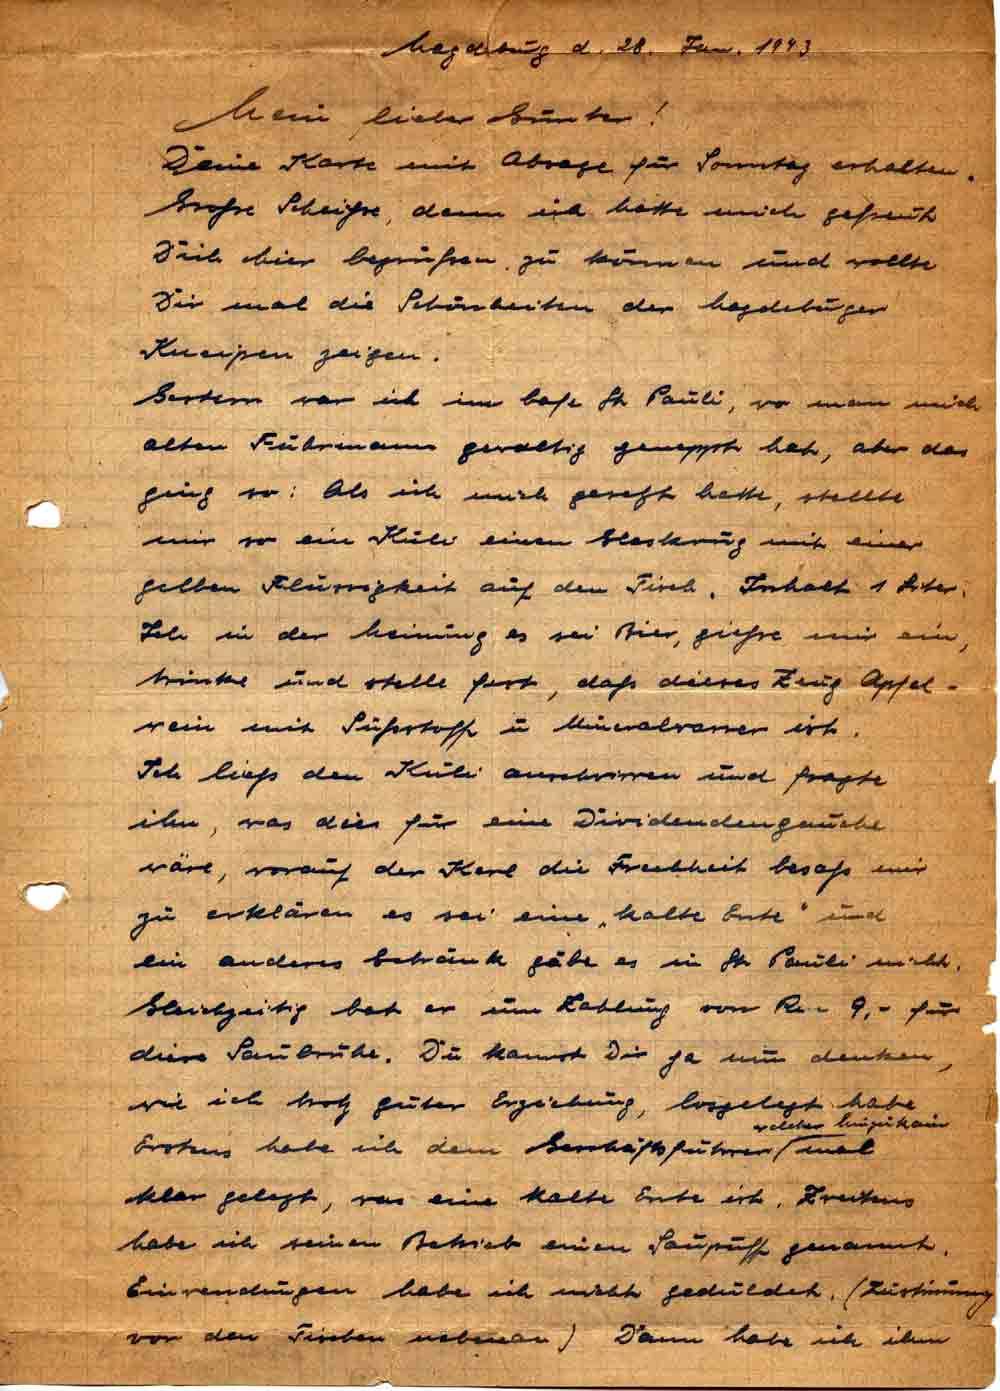 Magdeburg d. 28. Jan. 1943
Mein lieber Günter!
Deine Karte mit Absage für Sonntag erhalten.
Große Scheiße, denn ich hatte mich gefreut
Dich hier begrüßen zu können und wollte
Dir mal die Schönheiten der Magdeburger
Kneipen zeigen.
Gestern war ich im Cafe St. Pauli, wo man mich
alten Fuhrmann gewaltig geneppt hat, aber das
ging so: Als ich mich gesetzt hatte, stellte
mir so ein Kuli einen Glaskrug mit einer
gelben Flüssigkeit auf den Tisch. Inhalt 1 Liter.
Ich in der Meinung es sei Bier, gieße mir ein,
trinke und stelle fest, daß dieses Zeug Apfel-
wein mit Süßstoff u Mineralwasser ist.
Ich ließ den Kuli anschwirren und fragte
ihn, was dies für eine Dividendengauche
wäre, worauf der Kerl die Frechheit besaß mir
zu erklären es sei eine „kalte Ente" und
ein anderes Getränk gäbe es in St. Pauli nicht.
Gleichzeitig bat er um Zahlung von Rm 9,- für
diese Saubrühe. Du kannst Dir ja nun denken,
wie ich trotz guter Erziehung, losgelegt habe
Erstens habe ich dem Geschäftsführer / mal
klar gelegt, was eine kalte Ente ist. Zweitens
habe ich seinen Betrieb einen Saupuff genannt.
Einwendungen habe ich nicht geduldet. (Zustimmung
von den Tischen nebenan) Dann habe ich ihm